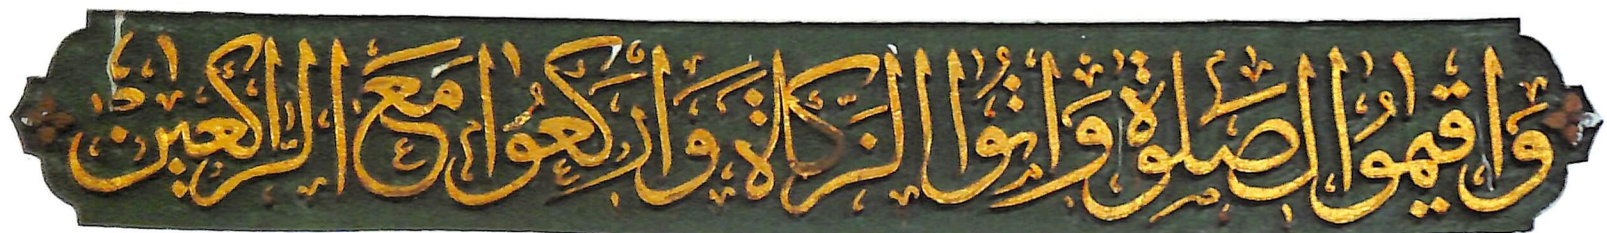 وَاقيمُوا الصَّلوةَ وَاتُوا الزَّكاةَ وَاركَعُوا مَعَ الراكعين